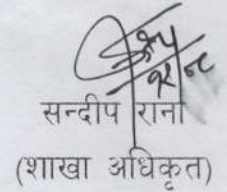 सन्दीप राना
(शाखा अधिकृत)